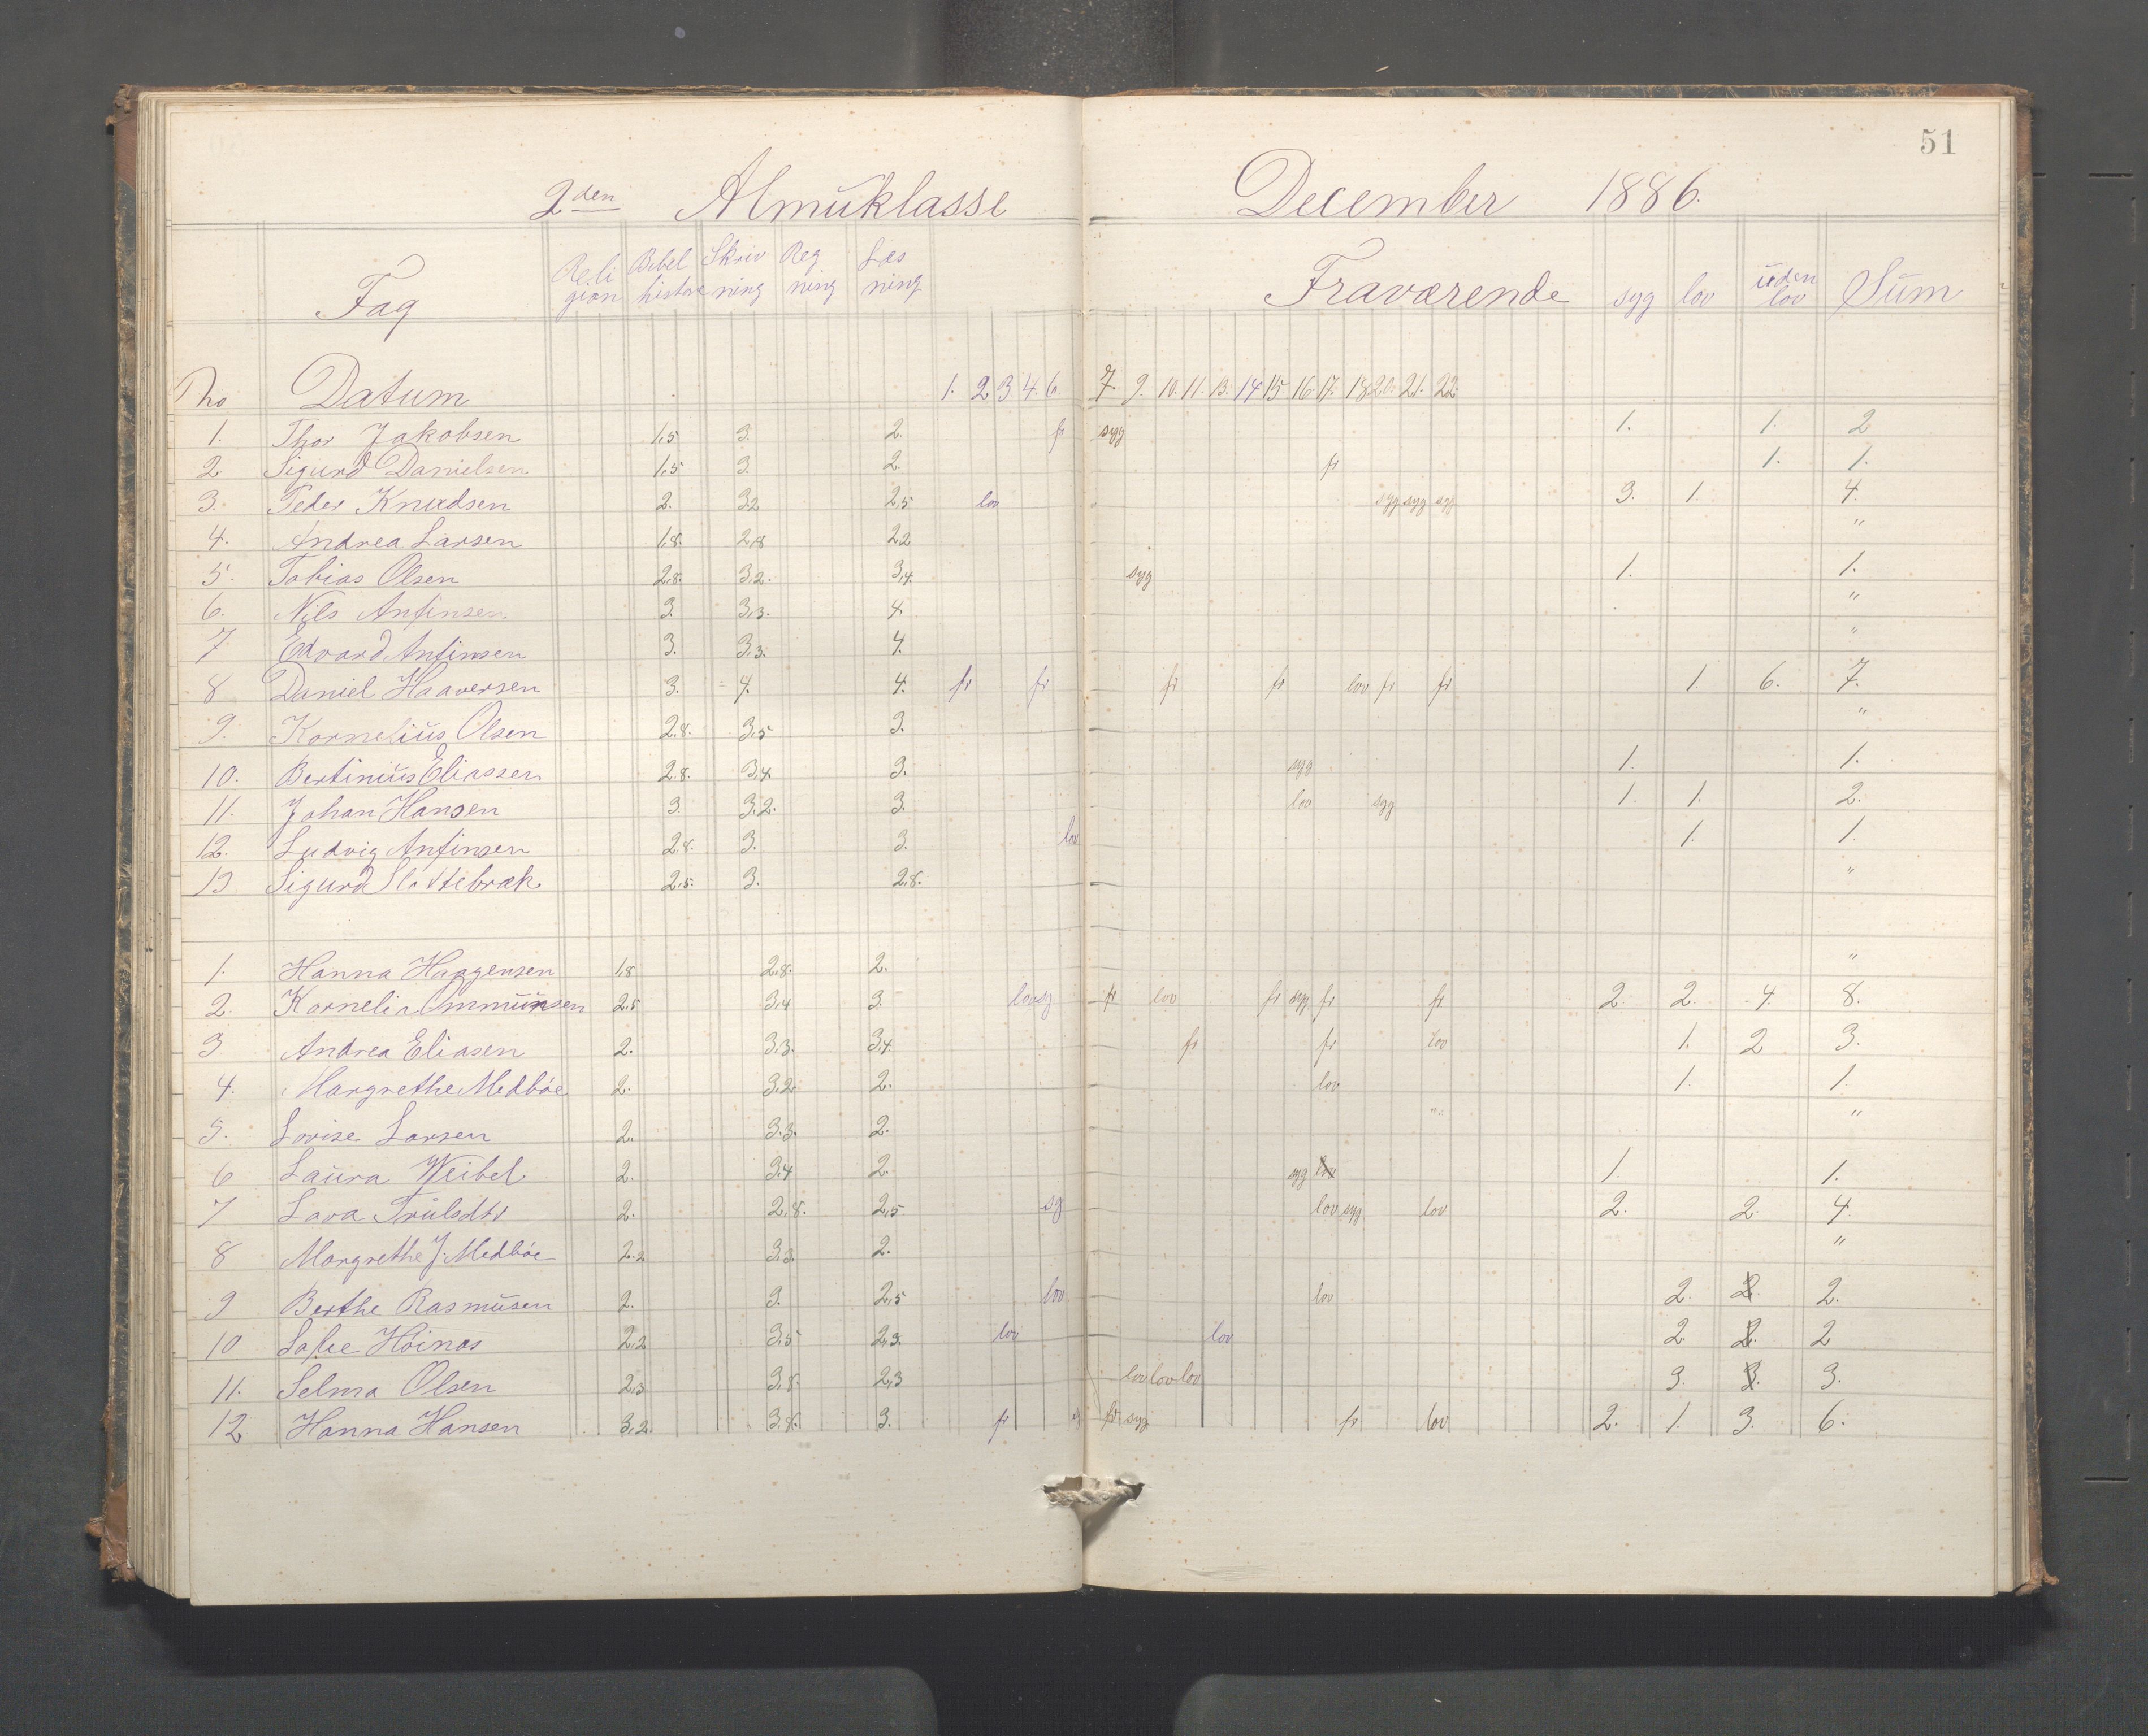 51
2den Almuklasse December 1886.
Fag Reli gion Bibel historie Skriv ning Reg ning Læs ning Fraværende syg lov uden lov Sum
No Datum 1. 2 3 4. 6 7. 9. 10. 11. 13. 14 15. 16. 17. 18 20. 21. 22.
1. Thor Jakobsen 1,5 3. 2. fr syg 1. 1. 2
2 Sigurd Danielsen 1,5 3. 2. fr 1. 1.
3. Peder Knudsen 2. 3.2 2,5 lov syg syg syg 3. 1. 4.
4. Andrea Larsen 1,8. 2,8 2,2 "
5. Tobias Olsen 2,8. 3,2. 3,4. syg 1. 1.
6. Nils Anfinsen 3. 3,3. 4. "
7. Edvard Anfinsen 3. 3,3. 4. "
8 Daniel Haaversen 3. 4. 4. fr fr fr fr lov fr fr 1. 6. 7.
9. Kornelius Olsen 2.8. 3,5 3. "
10. Bertinius Eliassen 2.8. 3,4. 3. syg 1. 1.
11. Johan Hansen 3. 3,2. 3. lov syg 1. 1. 2.
12. Ludvig Anfinsen 2.8. 3. 3. lov 1. 1.
13 Sigurd Slottebræk. 2,5. 3. 2,8. "
1. Hanna Haagensen 1,8 2,8. 2. "
2. Kornelia Ommunsen 2,5 3,4 3. lov sg fr lov fr syg fr fr 2. 2. 4. 8.
3 Andrea Eliasen 2. 3,3. 3,4. fr fr lov 1. 2 3.
4. Margrethe Medbøe 2. 3,2. 2. lov 1. 1.
5. Lovise Larsen 2. 3.3. 2. " "
6 Laura Weibel 2. 3,4 2. syg lov 1. 1.
7 Lava Trulsdtr 2. 2,8. 2,5 sg lov syg lov 2. 2. 4.
8 Margrethe J. Medbøe 2.2 3,3. 2. "
9 Berthe Rasmusen 2. 3. 2,5 lov lov 2. 2. 2.
10 Høinæs 2,2 3,5 2,3. lov lov 2. 2. 2
11. Selma Olsen 2,3 3,8. 2,3 lov lov lov 3. 3. 3.
12 Hanna Hansen 3,2. 3,8. 3. fr fr syg fr lov 2. 1. 3. 6.